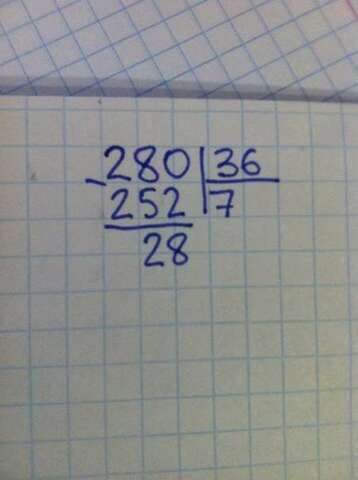 - 280 | 36
252 | 7
28